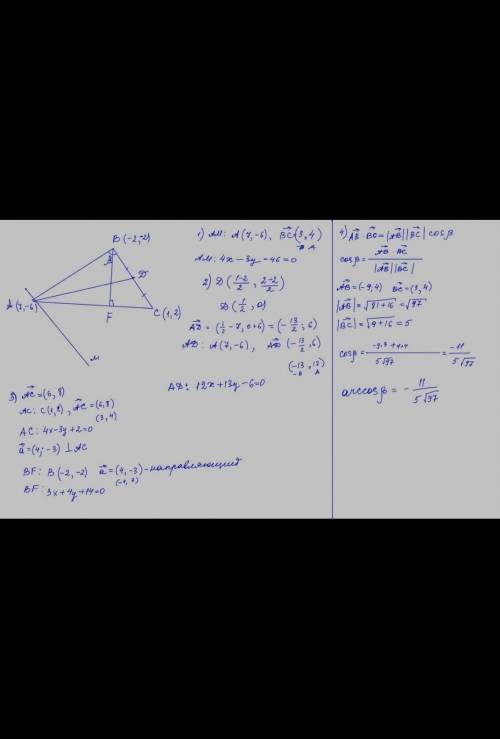 B(-2,-2)
β
D
A(7,-6)
F
C(1,2)
M
1) AM: A(7,-6), BC⃗(3,4)
-B A
AM: 4x-3y-46=0
2) D(\frac{1-2}{2}, \frac{2-2}{2})
D(\frac{1}{2}, 0)
AD⃗ = (\frac{1}{2}-7, 0+6) = (-\frac{13}{2}; 6)
AD: A(7,-6), AD⃗(-\frac{13}{2}, 6)
(-13, 12)
-B A
AD: 12x+13y-6=0
3) AC⃗=(6,8)
AC: C(1,2), AC⃗=(6,8)
(3,4)
AC: 4x-3y+2=0
a⃗=(4;-3) ⊥ AC
BF: B(-2,-2) a⃗=(4,-3)-направляющий
BF: 3x+4y+14=0
4) AB⃗·BC⃗=|AB⃗||BC⃗|cosβ
cosβ=\frac{AB⃗·BC⃗}{|AB⃗||BC⃗|}
AB⃗=(-9,4) BC⃗=(3,4)
|AB⃗|=√81+16=√97
|BC⃗|=√9+16=5
cosβ=\frac{-9·3+4·4}{5√97}=\frac{-11}{5√97}
arccosβ=-\frac{11}{5√97}